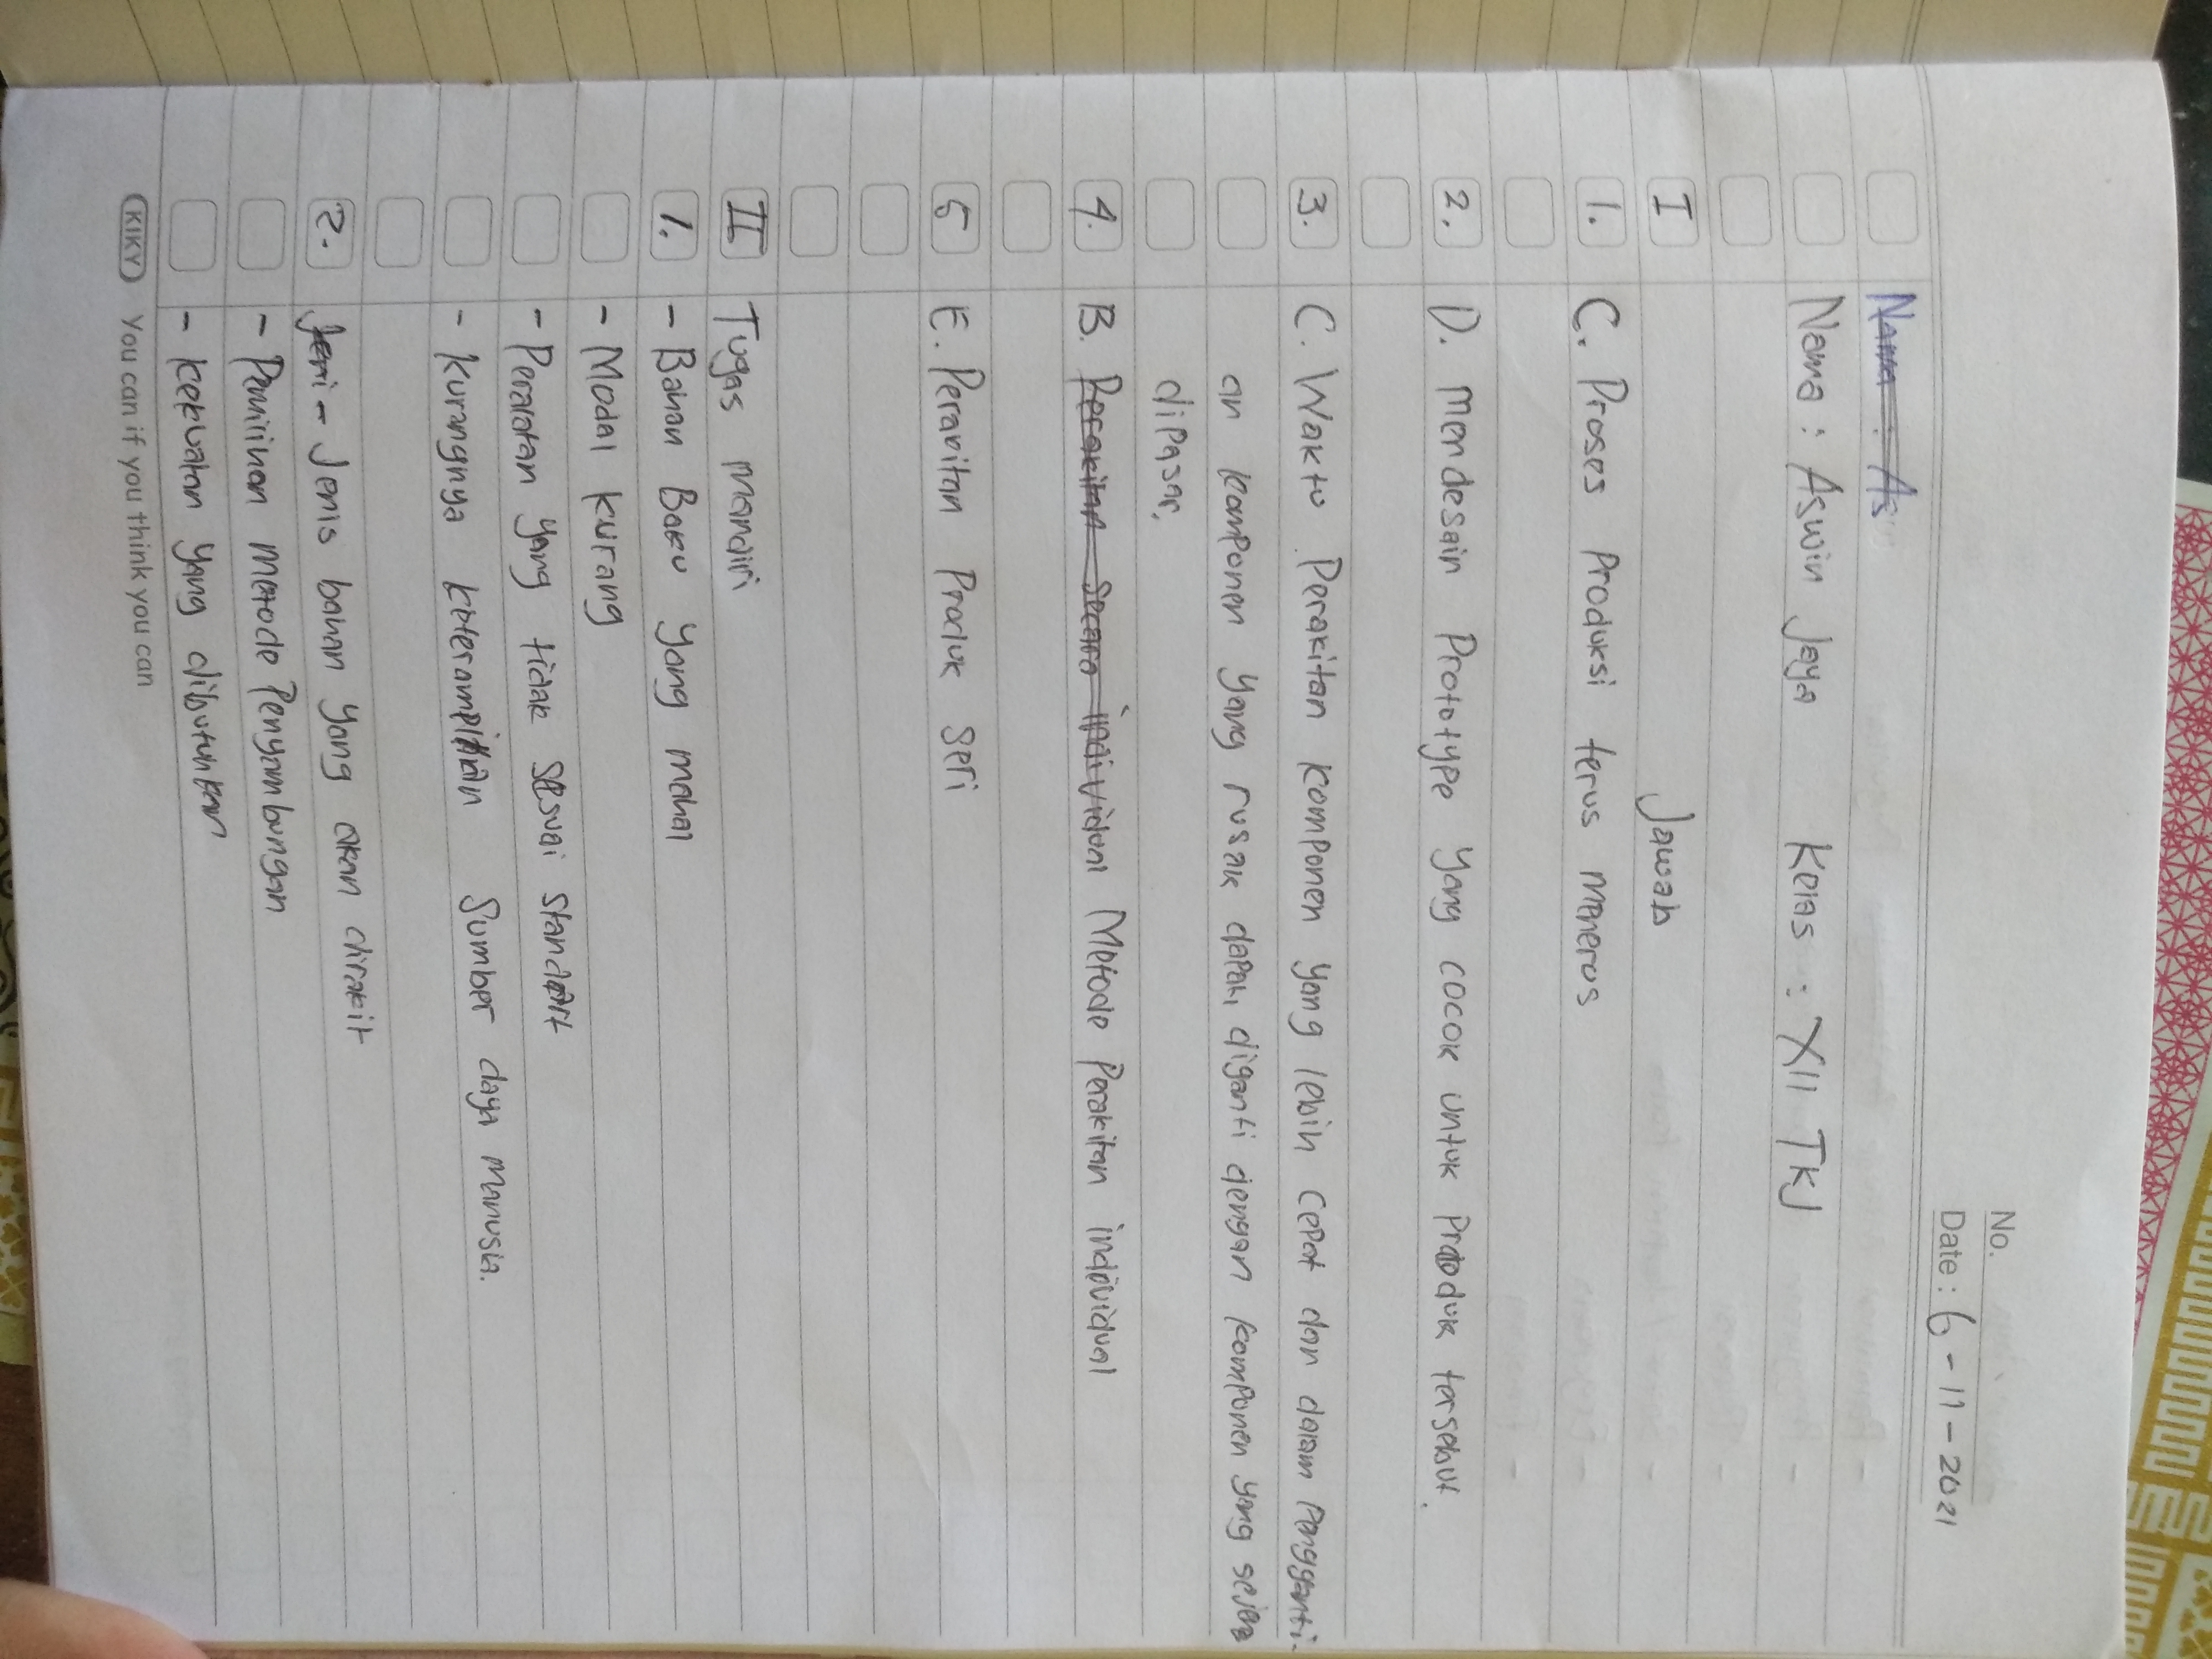 No.
Date : 6 - 11 - 2021
Nama : As
Nama : Aswin Jaya Kelas : XII TKJ
Jawab
I
1. C. Proses Produksi terus menerus
2. D. mendesain Prototype yang cocok untuk Produk tersebut.
3. C. Waktu Perakitan komponen yang lebih cepat dan dalam Pengganti-
an komponen yang rusak dapat diganti dengan komponen yang sejenis
dipasar.
4. B. Perakitan Secara individual Metode Perakitan individual
5 E. Perakitan Produk seri
II Tugas mandiri
1. - Bahan Baku yang mahal
- Modal kurang
- Peralatan yang tidak sesuai standart
- kurangnya keterampilan Sumber daya manusia.
2. Jeni - Jenis bahan yang akan dirakit
- Pemilihan metode Penyambungan
- kekuatan yang dibutuhkan
KIKY You can if you think you can